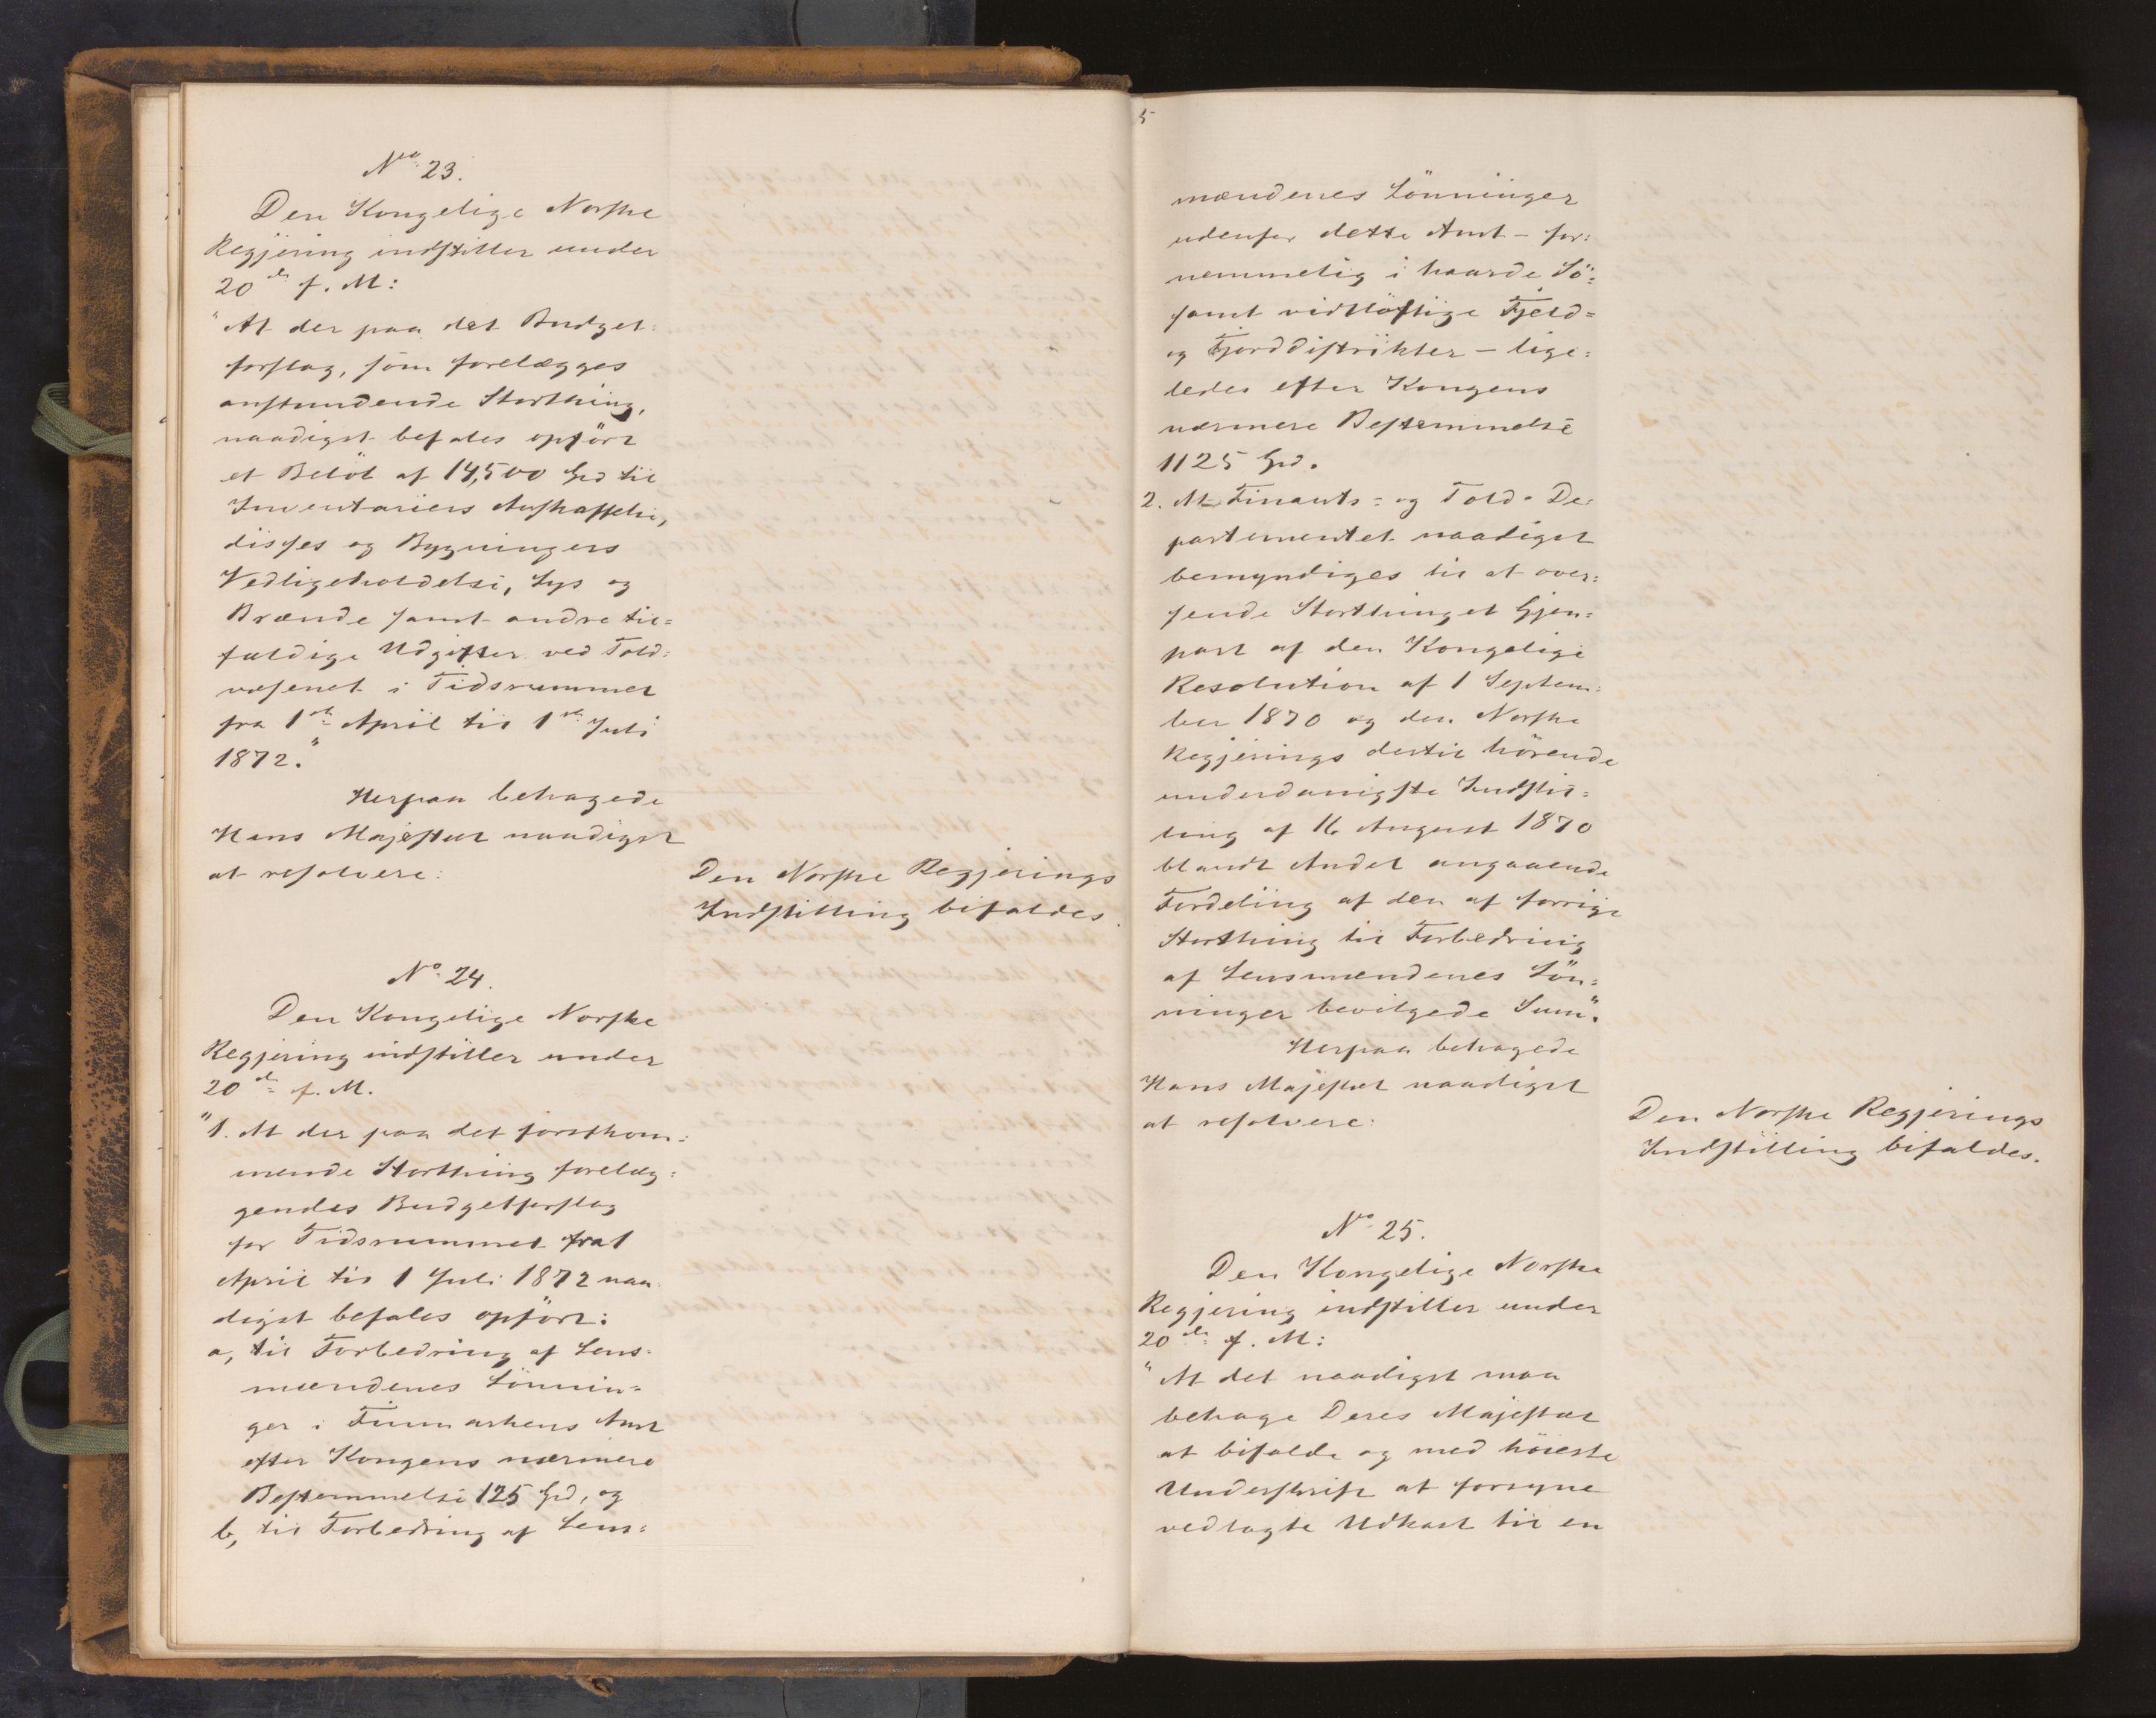 No 23.
Den Kongelige Norske
Regjering indstiller under
20de f. M:
"At der paa det Budget-
forslag, som forelægges
anstundende Storthing,
naadigst befales opført
et Beløb af 14,500 Spd til
Inventariers Anskaffelse,
disses og Bygningers
Vedligeholdelse, Lys og
Brænde samt andre til=
fældige Udgifter ved Told=
væsenet i Tidsrummet
fra 1ste April til 1ste Juli
1872."
Herpaa behagede
Hans Majestæt naadigst
at resolvere:
Den Norske Regjerings
Indstilling bifaldes.
No 24.
Den Kongelige Norske
Regjering indstiller under
20de f. M.
"1. At der paa det førstkom=
mende Storthing forelæg=
gendes Budgetforslag
for Tidsrummet fra 1
April til 1 Juli 1872 naa
digst befales opført:
a, til Forbedring af Lens-
mændenes Lønnin=
ger i Finmarkens Amt
efter Kongens nærmere
Bestemmelse 125 Spd, og
b, til Forbedring af Lens=
5
mændenes Lønninger
udenfor dette Amt - for=
nemmelig i haarde Sö=
samt vidtløftige Fjeld=
og Fjorddistrikter - lige=
ledes efter Kongens
nærmere Bestemmelse
1125 Spd.
2. At Finants= og Told= De=
partementet naadigst
bemyndiges til at over=
sende Storthinget Gjen=
part af den Kongelige
Resolution af 1 Septem=
ber 1870 og den Norske
Regjerings dertil hørende
underdanigste Indstil=
ling af 16 August 1870
blandt Andet angaaende
Fordeling af den af forrige
Storthing til Forbedring
af Lensmændenes Løn=
ninger bevilgede Sum."
Herpaa behagede
Hans Majestæt naadigst
at resolvere:
Den Norske Regjerings
Indstilling bifaldes.
No 25.
Den Kongelige Norske
Regjering indstiller under
20de f. M:
"At det naadigst maa
behage Deres Majestæt
at bifalde og med høieste
Underskrift at forsyne
vedlagte Udkast til en